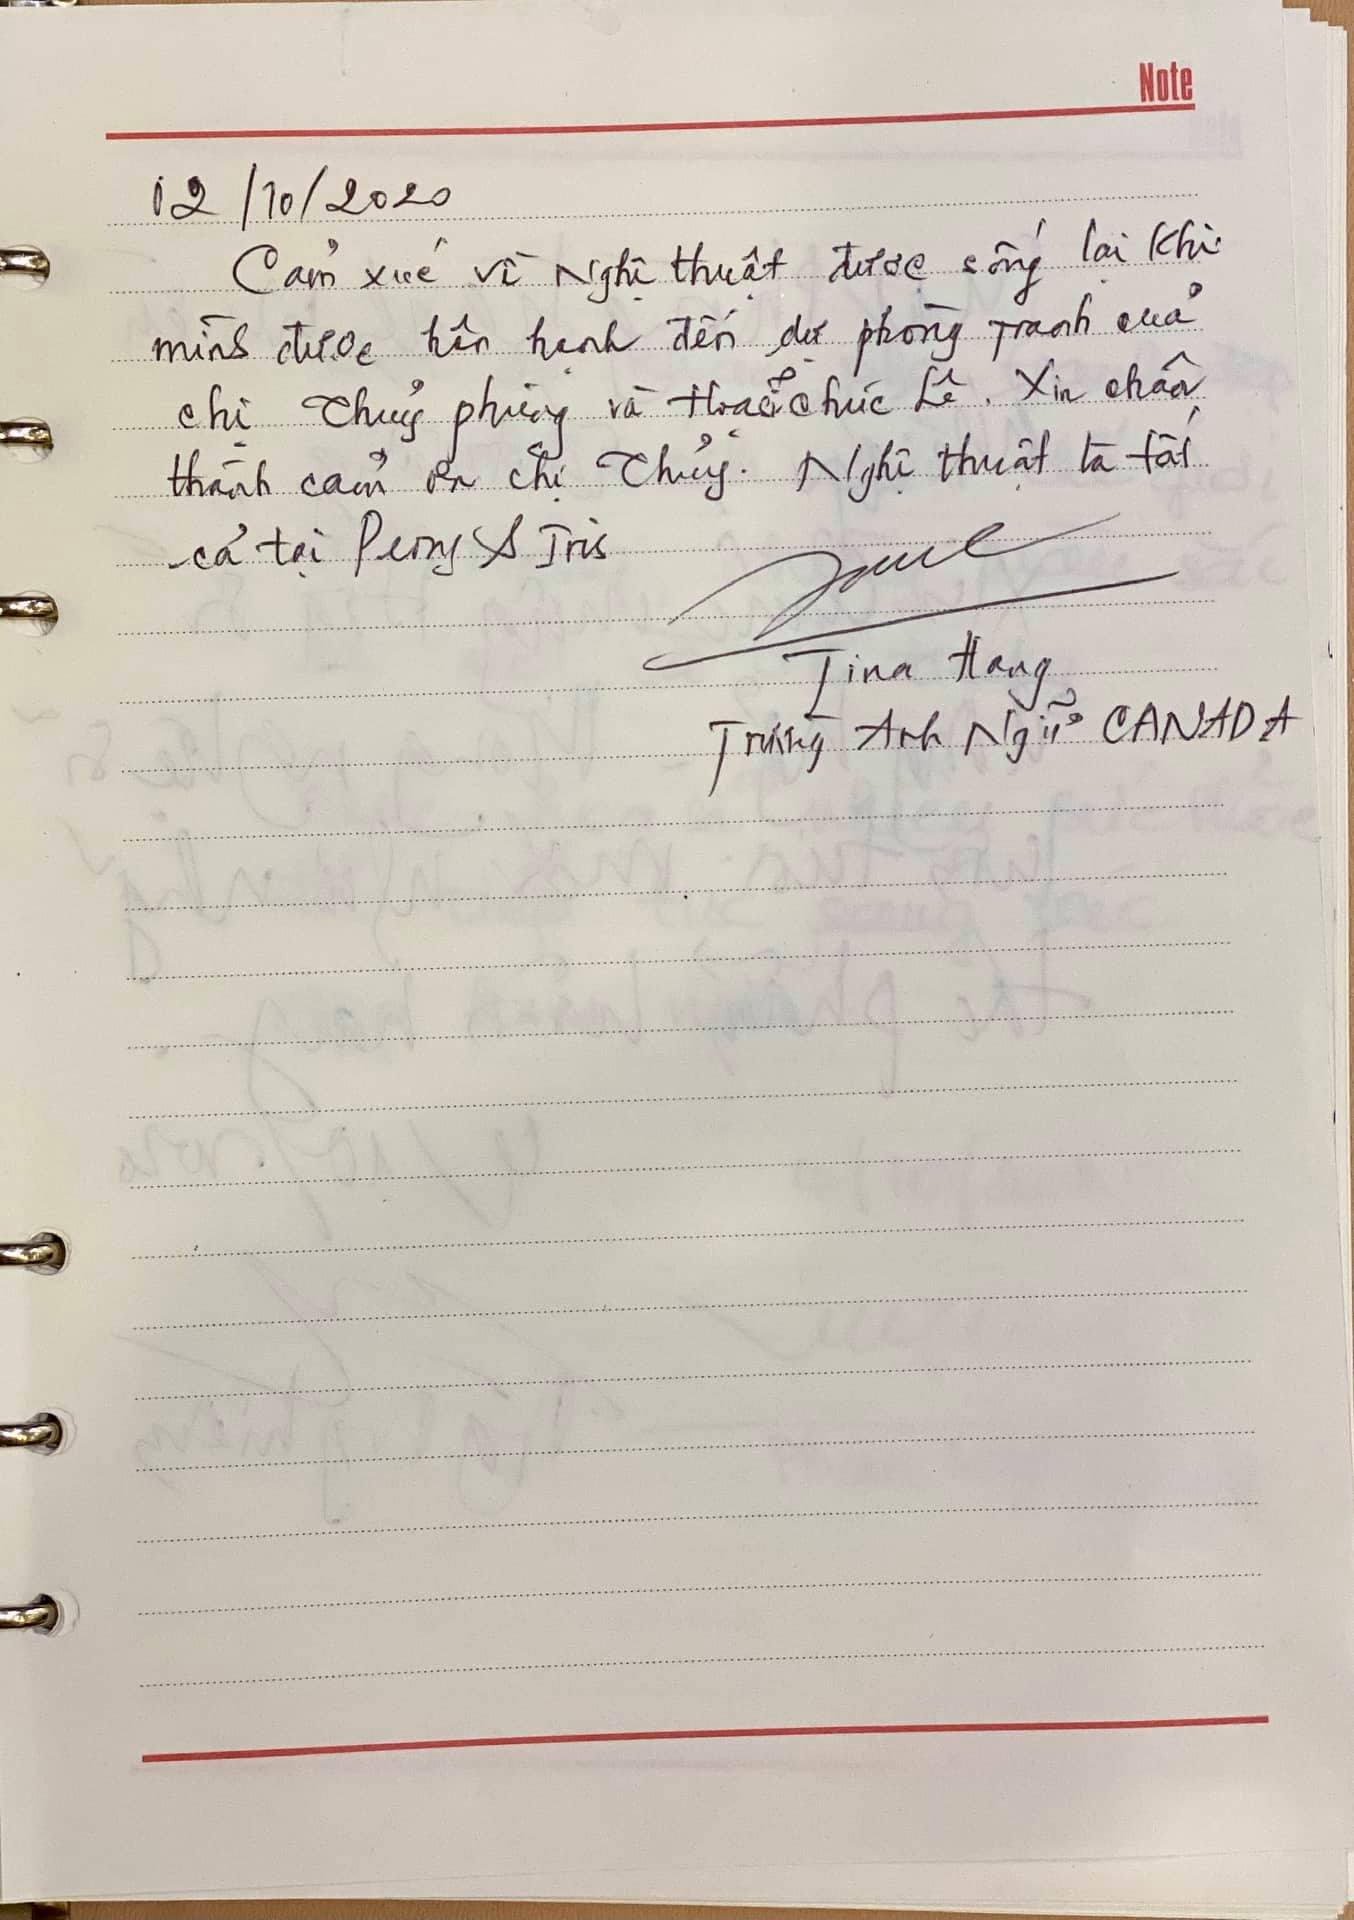 Note
12/10/2020
Cảm xúc về Nghệ thuật được sống lại khi
mình được hân hạnh đến dự phòng Tranh của
chị Thủy phương và Hoạ sĩ chúc Lê. Xin chân
thành cảm ơn chị Thủy. Nghệ thuật là tất
cả tại Peony & Iris
Tina Hang
Trường Anh Ngữ CANADA